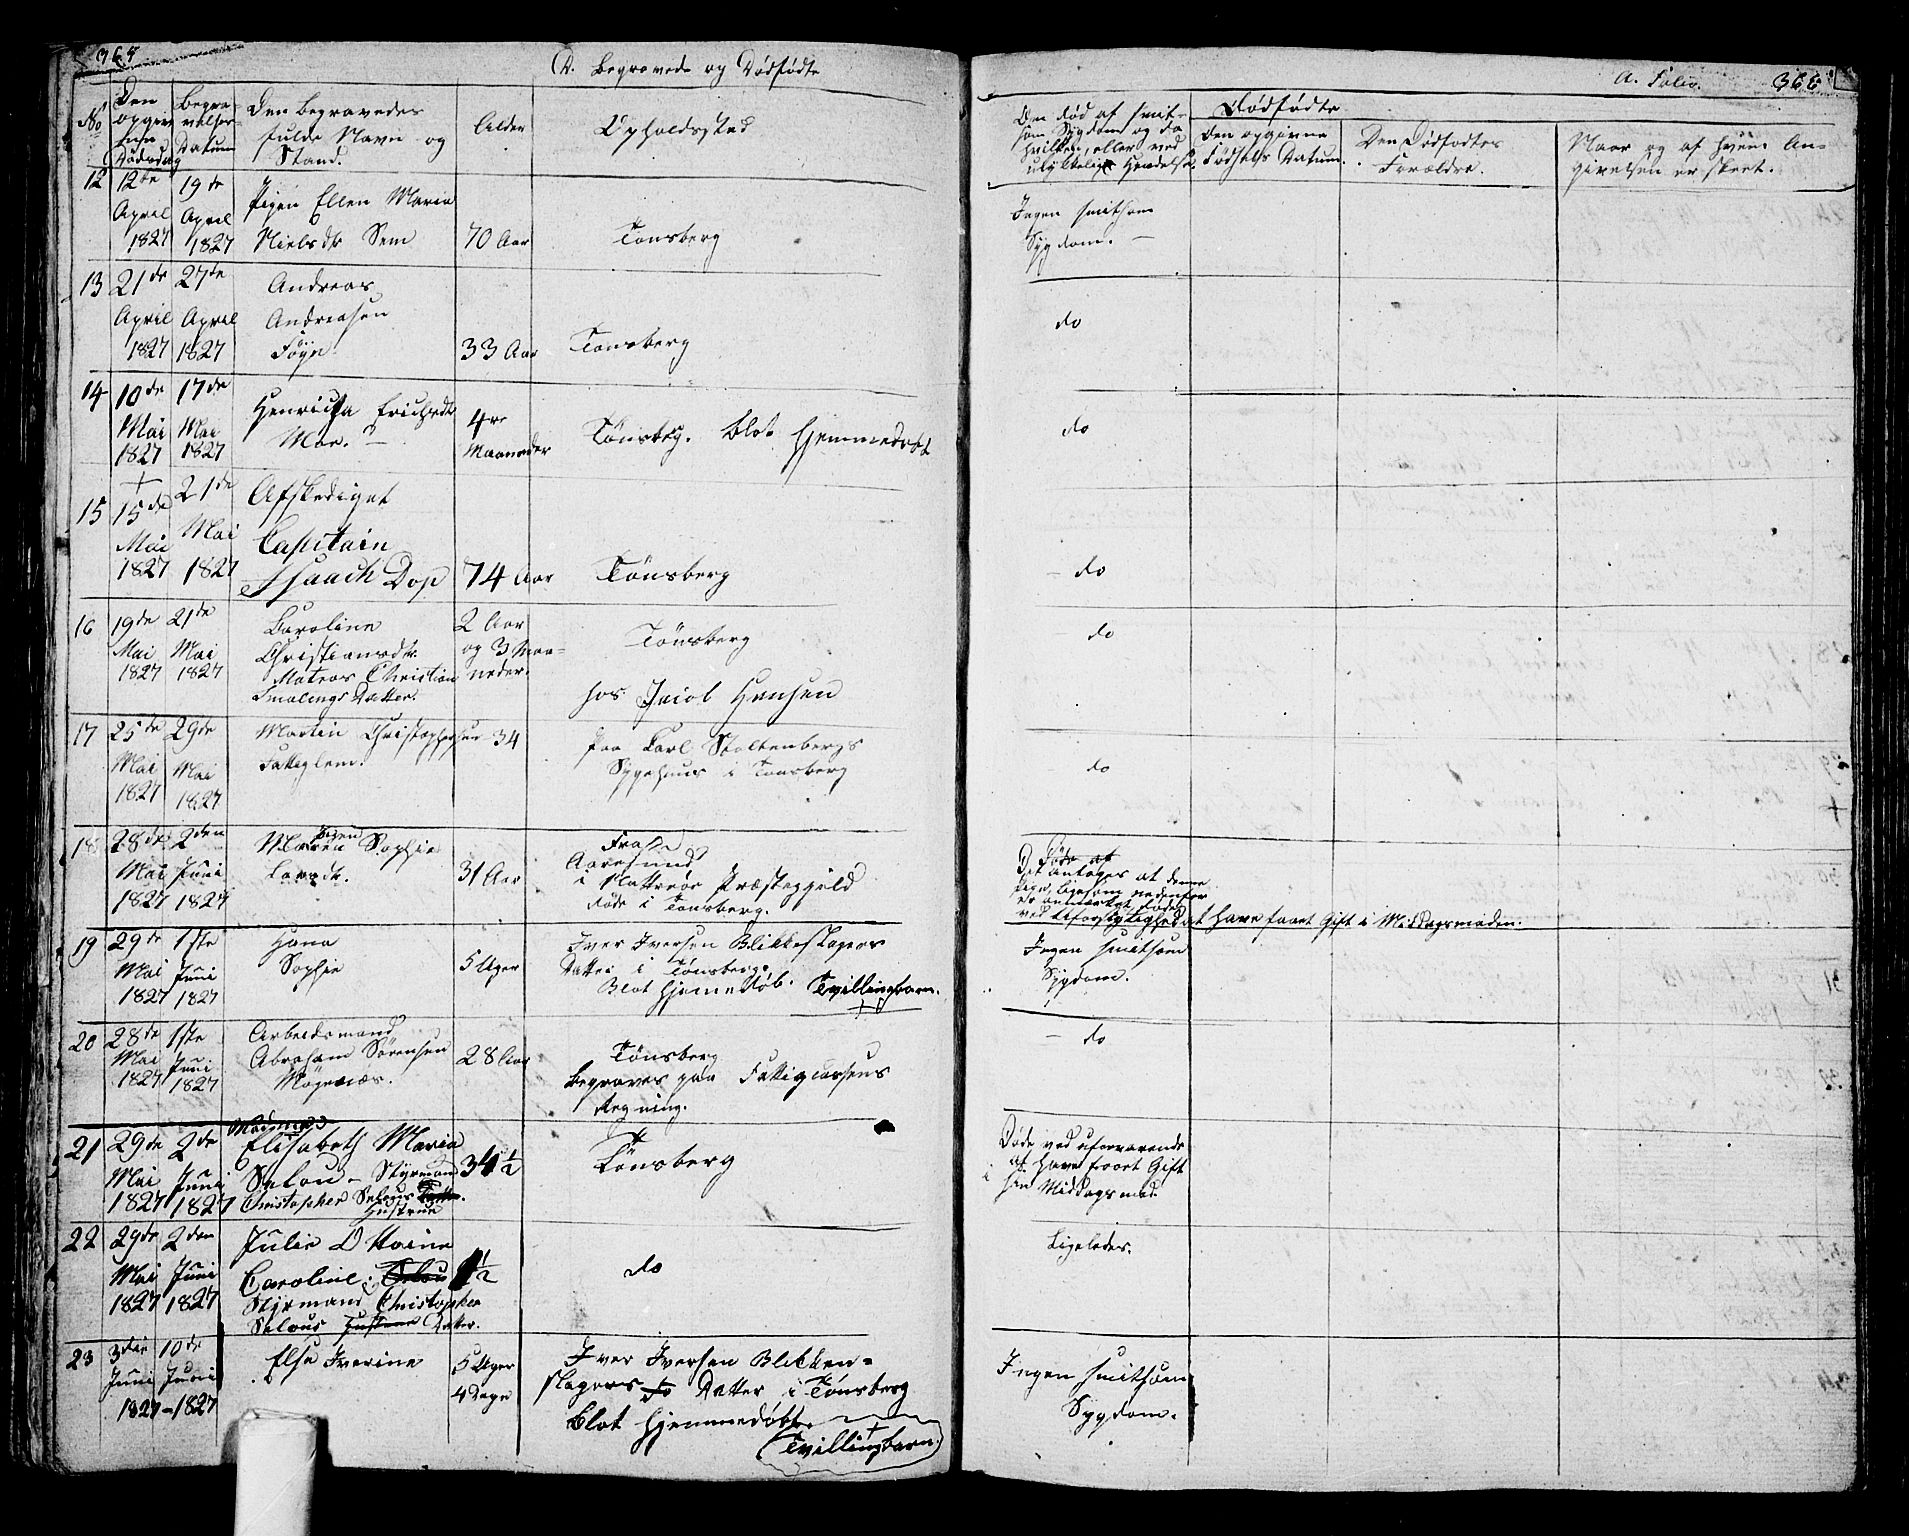 365
D. Begravede og Dødfødte
No
Den opgivne Dødsdag
Begravelses-Datum
Den Begravedes
fulde Navn og
Stand.
Alder
Opholdssted
12
12te
April
1827
19de
April
1827
Pigen Ellen Maria
Nielsdtr Sem
70 Aar
Tønsberg
13
21de
April
1827
27de
April
1827
Andreas
Andreasen
Føyn
33 Aar
Tønsberg
14
10de
Mai
1827
17de
Mai
1827
Henricha Erichsdtr
Moe.
4re
Maaneder
Tønsbrg. Blot Hjemmedøbt
15
15de
Mai
1827
21de
Mai
1827
Afskediget
Capitain
Isaach Dop
74 Aar
Tønsberg
16
19de
Mai
1827
21de
Mai
1827
Caroline
Christiansdtr.
Matros Christian
Smalings Datter.
2 Aar
og 3 Maa=
neder.
Tönsberg
hos Jacob Hansen
17
25de
Mai
1827
29de
Mai
1827
Martin Christophersen
Fattiglem.
34
Paa Carl Stoltenbergs
Sygehuus i Tønsberg
18
28de
Mai
1827
2den
Juni
1827
Pigen
Maren Sophie
Larsdtr.
31 Aar
Fra
Aarøesund
i Nøtterøe Præstegjeld
døde i Tønsberg.
19
29de
Mai
1827
1ste
Juni
1827
Hana
Sophie
5 Uger
Iver Iversen Blikkeslagers
Datter i Tønsberg.
Blot Hjemedøb. Tvillingbarn.
20
28de
Mai
1827
1ste
Juni
1827
Arbeidsmand
Abraham Sörensen
28 Aar
Tønsberg
Begraves paa Fattigcassens
Regning.
21
29de
Mai
1827
2de
Juni
1827
Madame
Elisabeth Maria
Selou - Styrmand
Christopher Selous
Hustrue
34½
Tönsberg
22
29de
Mai
1827
2den
Juni
1827
Julie Othine
Caroline Selou
Styrmand Christopher
Selous Hustrue Datter.
1½
do
23
3die
Juni
1827
10de
Juni
1827
Else Iverine
5 Uger
4 Dage
Iver Iversen Blikken=
slagers Datter i Tønsberg
Blot Hjemmedøbt.
Tvillingbarn.
A. Folio. 366
Den død af smit-
som Sygdom og da
hvilken, eller ved
ulykkelig Hendelse.
Dødfødte
Den opgivne
Fødsels Datum.
Den Dødfødtes
Forældre.
Naar og af hvem An-
givelsen er skeet.
Ingen smitsom
Sygdom.
do
do
do
do
do
Døde af
Det antages at denne
Pige, ligesom nedenfor
er anmærket, døde
ved Uforsigtighed at have faaet Gift i Middagsmaden.
Ingen smitsom
Sygdom.
do
Døde ved uforvarende
at have faaet Gift
i sin Middagsmad.
Ligeledes.
Ingen smitsom
Sygdom.